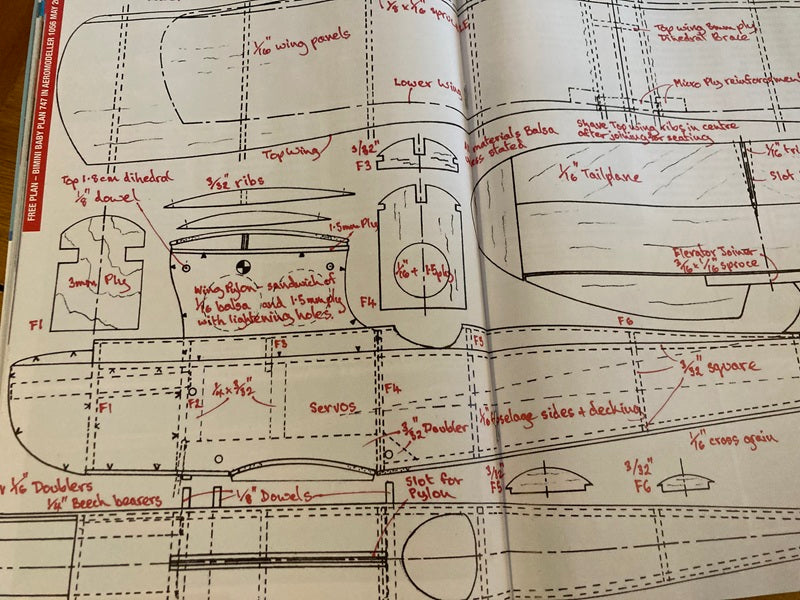 FREE PLAN – BIMINI BABY PLAN 747 IN AEROMODELLER 1056 MAY
1/8 x 1/16" spruce
1/16" wing panels
Top wing 3mm ply
Dihedral Brace
Lower wing
Micro Ply reinforcement
Top wing
Shave Top wing ribs in centre
after joining for seating
materials Balsa
less stated
3/32"
F3
Top 1.8cm dihedral
1/8" dowel
3/32" ribs
1.5mm Ply
1/16" Tailplane
slot
Elevator Joiner
3/16 x 1/16"
sproce
3mm Ply
F1
Wing Pylon - sandwich of
1/16 balsa and 1.5mm ply
with lightening holes.
F4
1/16" + 1.5ply
F6
F3
F5
3/32" square
F1
F2
1/4 x 3/32"
Servos
F4
3/32" Doubler
1/16" fuselage sides + decking
1/16" cross grain
1/16" Doublers
1/4" Beech bearers
1/8" Dowels
Slot for
Pylon
3/32"
F5
3/32"
F6